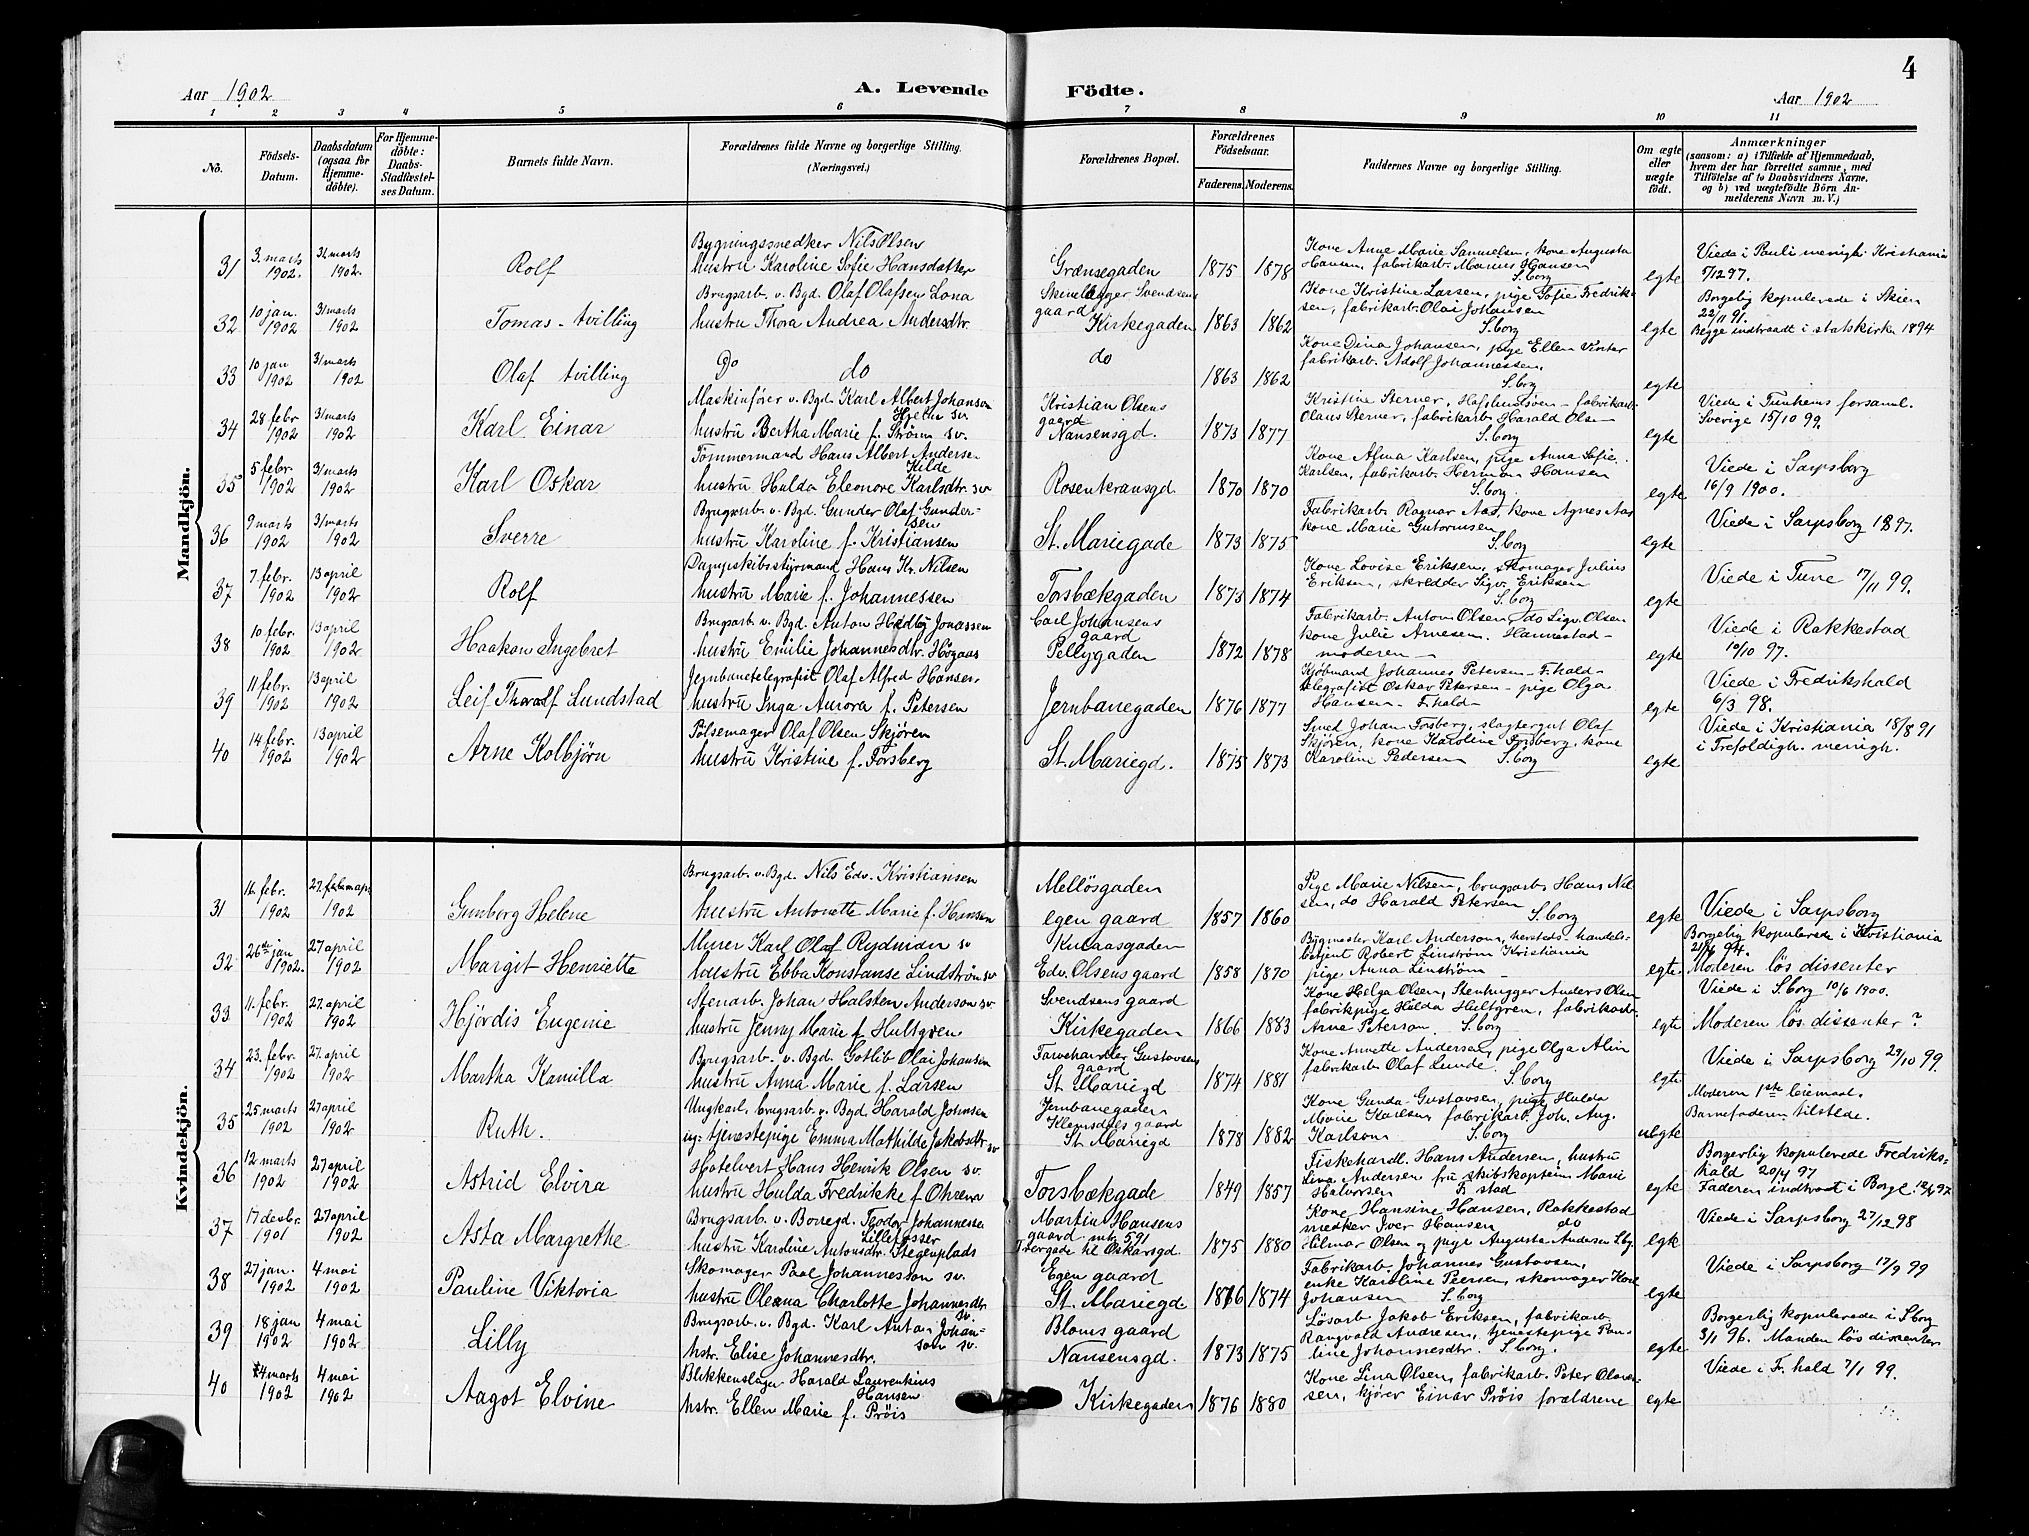 4
Aar 1902
A. Levende Födte.
Aar 1902
1 2 3 4 5 6 7 8 9 10 11
No.
Födsels-Datum.
Daabsdatum (ogsaa for Hjemme-döbte).
For Hjemme-döbte: Daabs-Stadfæstel-ses Datum.
Barnets fulde Navn.
Forældrenes fulde Navne og borgerlige Stilling. (Næringsvei.)
Forældrenes Bopæl.
Forældrenes Födselsaar.
Faderens. Moderens.
Faddernes Navne og borgerlige Stilling.
Om ægte eller uægte födt.
Anmærkninger (saasom: a) i Tilfælde af Hjemmedaab, hvem der har forrettet samme, med Tilföielse af to Daabsvidners Navne, og b) ved uægtefödte Börn An-melderens Navn m. V.)
Mandkjön.
31 3. marts 1902. 31 marts 1902. Rolf
Bygningssnedker Nils Olsen
hustru Karoline Sofie Hansdatter
Grænsegaden 1875 1878
Kone Anne Marie Samuelsen, kone Augusta
Hansen, fabrikarb. Marius Hansen
S.borg egte
Viede i Pauli menigh. Kristiania
5/12 97.
32 10 jan. 1902 31 marts 1902 Tomas - tvilling
Brugsarb. v. Bgd. Olaf Olafsen Lona
hustru Thora Andrea Andersdtr.
Svendsens gaard
Kirkegaden 1863 1862
Kone Kristine Larsen, pige Sofie Fredrik-
sen, fabrikarb. Olai Johansen
S.borg egte
Borgelig kopulerede i Skien
22/11 91.
Begge indtraadt i statskirk. 1894
33 10 jan 1902 31 marts 1902 Olaf tvilling
Do do
do 1863 1862
Kone Dina Johansen, pige Ellen Vinter
fabrikarb. Adolf Johannessen.
S.borg egte
34 28 febr 1902 31 marts 1902 Karl Einar
Maskinfører v. Bgd. Karl Albert Johanson
Hjelm sv
hustru Bertha Marie f. Ström sv.
Kristian Olsens
gaard
Nansensgd. 1873 1877
Kristine Sterner, fabrikarb.
Olaus Sterner, fabrikarb. Harald Olse-
S.borg egte
Viede i forsaml.
Sverige 15/10 99.
35 5 febr. 1902 31 marts 1902 Karl Oskar
Tömmermand Hans Albert Andersen
Kilde
hustru Hulda Eleonore Karlsdtr. sv
Rosenkransgd. 1870 1870
Kone Alma Karlsen, pige Anna Sofie
Karlsen, fabrikarb. Herman Hansen
S.borg. egte
Viede i Sarpsborg
16/9 1900.
36 9 marts 1902 31 marts 1902 Sverre
Brugsarb. v. Bgd. Gunder Olaf Gunder-
sen
hustru Karoline f. Kristiansen
St. Mariegade 1873 1875
Fabrikarb. Ragnar Aas, kone Agnes Aas
kone Marie Gutormsen
S.borg egte
Viede i Sarpsborg 1897.
37 7. febr. 1902 13 april 1902 Rolf
Dampskibsstyrmand Hans Kr. Nilsen
hustru Marie f. Johannessen
Torsbækgaden 1873 1874
Kone Lovise Eriksen, skomager Julius
Eriksen, skredder Sigv. Eriksen
S.borg egte
Viede i Tune 17/11 99.
38 10. febr. 1902 13 april 1902 Haakon Ingebret
Brugsarb. v. Bgd. Anton Hedby Jonassen
hustru Emilie Johannesdtr. Högaas
Carl Johansens
gaard
Pellygaden 1872 1878
Fabrikarb. Anton Olsen, do Sigv. Olsen
kone Julie Arnesen. Hannestad -
moderen - egte
Viede i Rakkestad
10/10 97.
39 11 febr. 1902 13 april 1902 Leif Thoralf Lundstad
Jernbanetelegrafist Olaf Alfred Hansen
hustru Inga Aurora f. Petersen
Jernbanegaden 1876 1877
Kjöbmand Johannes Petersen - F.hald -
telegrafist Oskar Petersen - pige Olga
Hansen - F.hald - egte
Viede i Fredrikshald
6/3 98.
40 14 febr. 1902 13 april 1902 Arne Kolbjörn
Pölsemager Olaf Olsen Skjören
hustru Kristine f. Forsberg
St. Mariegd. 1875 1873
Smed Johan Forsberg, slagtergut Olaf
Skjören, kone Karoline Forsberg, kone
Karoline Pedersen S.borg egte
Viede i Kristiania 18/8 91
i Trefoldigh. menigh.
Kvindekjön.
31 16. febr. 1902 27. 1902 Gunborg Helene
Brugsarb. v. Bgd. Nils Edv. Kristiansen
hustru Antonette Marie f. Hansen
Mellösgaden
egen gaard 1857 1860
Pige Marie Nilsen, brugsarb. Hans Nil-
sen, do Harald Petersen
S.borg egte
Viede i Sarpsborg
32 26de jan 1902. 27 april 1902 Margit Henriette
Murer Karl Olaf Rydman sv
hustru Ebba Konstanse Lindström sv
Kulaasgaden
Edv. Olsens gaard 1858 1870
Bygmester Karl Anderson, handels-
betjent Robert Linström Kristiania
pige Anna Linström - egte.
Borgelig kopulerede i Kristiania
Moderen lös dissenter
33 11. febr. 1902 27. april 1902 Hjördis Eugenie
Stenarb. Johan Halsten Anderson sv
hustru Jenny Marie f. Hultgren
Svendsens gaard
Kirkegaden 1866 1883
Kone Helga Olsen, Stenhugger Anders Olsen
fabrikpige Hulda Hultgren, fabrikarb.
Arne Peterson. S.borg egte
Viede i S.borg 10/6 1900.
Moderen lös dissenter?
34 23. febr. 1902 27. april 1902 Martha Kamilla
Brugsarb. v. Bgd. Gotlib Olai Johansen
hustru Anna Marie f. Larsen
Farvehandler Gustavsens
gaard
St. Mariegd 1874 1881
Kone Annette Andersen, pige Olga Alin
fabrikarb. Olaf Lunde.
S.borg egte
Viede i Sarpsborg 29/10 99.
35 25 marts 1902 27 april 1902 Ruth.
Ungkarl, brugsarb. v. Bgd Harald Johnsen
og tjenestepige Emma Mathilde Jakobsdtr. sv
Jernbanegaden
Klemsdals gaard
St. Mariegd 1878 1882
Kone Gunda Gustavsen, pige Hulda
Marie Karlsen, fabrikarb. Joh. Aug.
Karlson S.borg uegte
Moderen 1ste leiemaal
Barnefaderen tilstede.
36 12 marts 1902 27 april 1902 Astrid Elvira
Hotelvert Hans Henrik Olsen sv.
hustru Hulda Fredrikke f.
Torsbækgade 1849 1857
Fiskehandl. Hans Andersen, hustru
Lina Andersen fru skibskaptein Marie
Halvorsen Fr.stad egte
Borgerlig kopulerede Fredriks-
hald 97
Faderen indtraat i
37 17 desbr. 1901 27 april 1902 Asta Margrethe
Brugsarb. v. Borregd. Teodor Johannessen
Lilletosser
hustru Karoline Antonsdtr. Stegenplads
Martin Hansens
gaard mtr 591
Tvergade til Oskarsgd. 1875 1880
Kone Hansine Hansen, Rakkestad
snedker Iver Hansen do
Hilmar Olsen og pige Augusta Andersen S.bg. egte
Viede i Sarpsborg 27/12 98
38 27 jan. 1902 4 mai 1902 Pauline Viktoria
Skomager Paal Johannesson sv.
hustru Oleana Charlotte Johannesdtr
Egen gaard
St. Mariegd 1876 1874
Fabrikarb. Johannes Gustavsen,
enke Karoline Peersen, skomager Karl
Johansen S.borg egte
Viede i Sarpsborg 17/9 99
39 18 jan 1902 4 mai 1902 Lilly
Brugsarb. v. Bgd. Karl Anton Johan-
son sv.
hstr. Elise Johannesdtr. sv.
Bloms gaard
Nansensgd. 1873 1875
Lösarb Jakob Eriksen, fabrikarb.
Rangvald Andresen, tjenestepige Pau-
line Johannesdtr. S.borg. egte
Borgerlig kopulerede i S.borg
3/11 96. Manden lös dissenter
40 4 marts 1902 4 mai 1902 Aagot Elvine
Blikkenslager Harald Laurentius
Hansen
hstr. Ellen Marie f. Pröis
Kirkegaden 1876 1880
Kone Lina Olsen, fabrikarb. Peter
sen, kjörer Einar Pröis forældrene egte
Viede i Fr.hald 7/1 99.